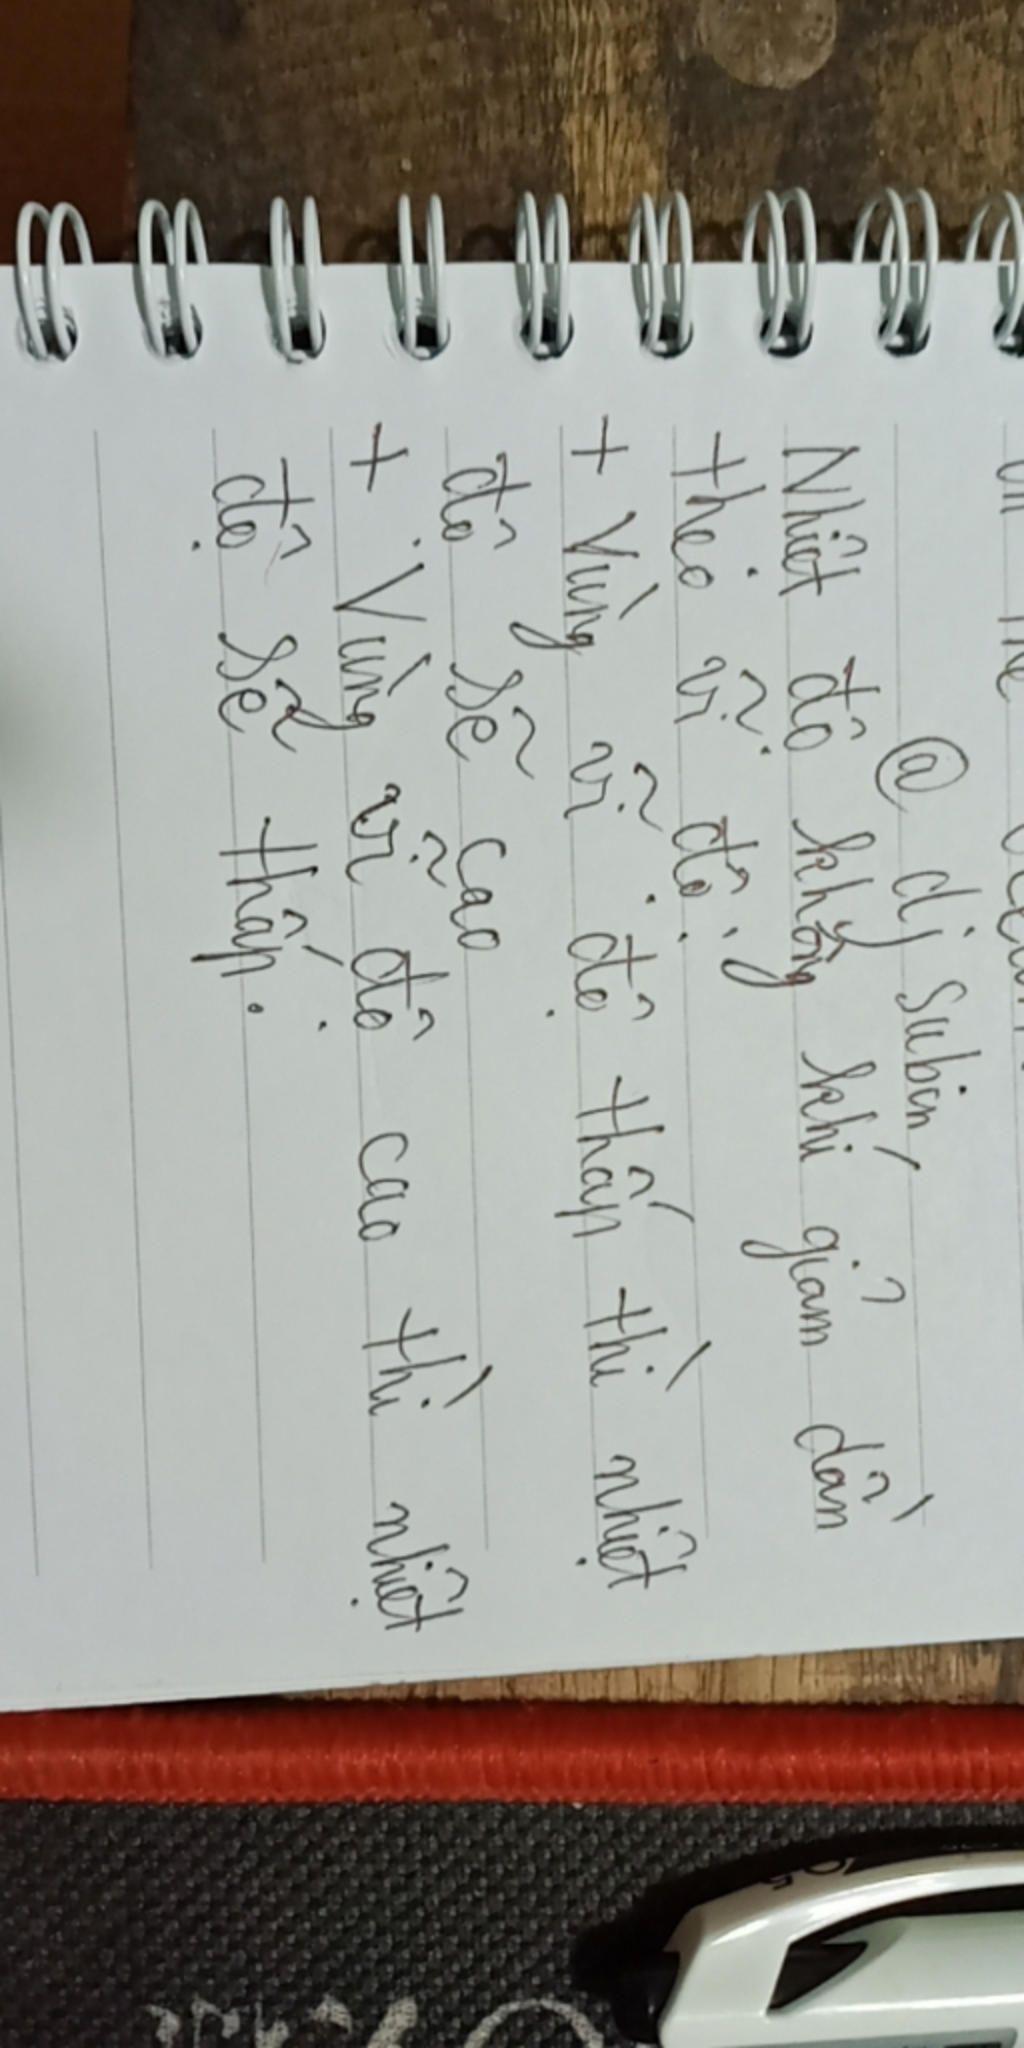 @ dj Subin
Nhiệt độ không khí giảm dần
theo vĩ độ;
+ Vùng vĩ độ thấp thì nhiệt
độ sẽ cao
+ Vùng vĩ độ cao thì nhiệt
độ sẽ thấp.